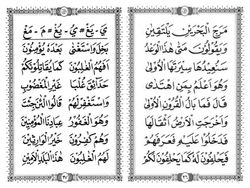 مَرَجَ الْبَحْرَيْنِ يَلْتَقِيٰنِ
وَيَقُولُونَ مَتٰى هٰذَا الْوَعْدُ
سَنُعِيدُهَا سِيرَتَهَا الْأُولٰى
وَهُوَ أَعْلَمُ بِمَنِ اهْتَدٰى
قَالَ فَمَا بَالُ الْقُرُونِ الْأُولٰى
وَأَخْرَجَتِ الْأَرْضُ أَثْقَالَهَا
فَدَخَلُوا عَلَيْهِ فَعَرَفَهُمْ
فَيَحْلِفُونَ لَهُ كَمَا يَحْلِفُونَ لَكُمْ
يَ - يَغْ = يُ - يُغْ = مَ - مَغْ
بَخِلَ وَاسْتَغْنٰى بَعْدَهُ يُؤْمِنُونَ
لَهُمُ الْغٰلِبُونَ كَمَا يُقَاتِلُونَكُمْ
حَدَآئِقَ غُلْبًا غَيْرِ الْمَغْضُوبِ
وَاسْتَغْفِرْ لَهُمْ
وَهُوَ الْغَفُورُ عِبَادَنَا الْمُؤْمِنِينَ
وَهُمْ بَعْدِ الْوَارِدِينَ
لَهُمُ الْغٰلِبُونَ هٰذَا الْبَلَدِ الْأَمِينِ